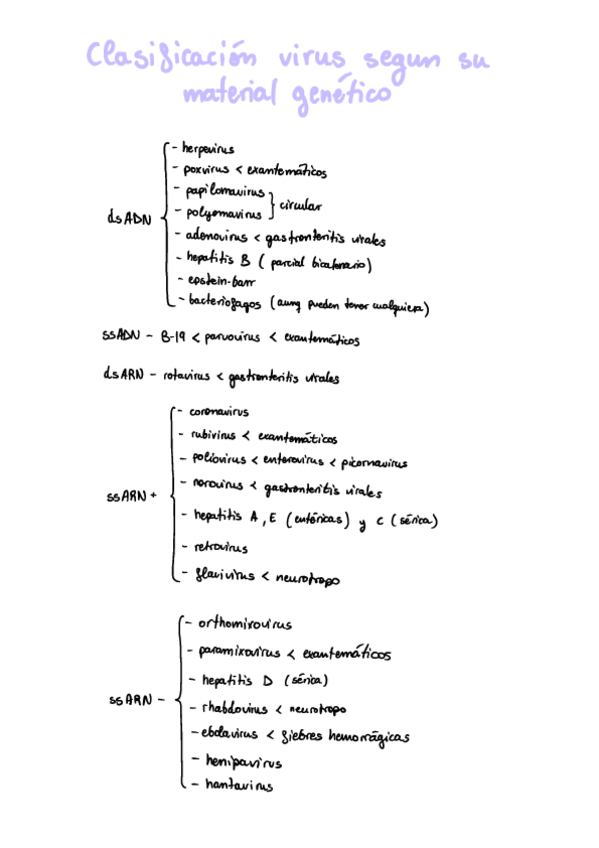 Clasificación virus segun su
material genético
dsADN
- herpevirus
- poxvirus < exantemáticos
- papilomavirus
- polyomavirus } circular
- adenovirus < gastronteritis virales
- hepatitis B ( parcial bicatenario)
- epstein-barr
- bacteriofagos (aunq pueden tener cualquiera)
ssADN - B-19 < parvovirus < exantemáticos
dsARN - rotavirus < gastronteritis virales
ssARN +
- coronavirus
- rubivirus < exantemáticos
- poliovirus < enterovirus < picornavirus
- norovirus < gastronteritis virales
- hepatitis A, E (entéricas) y C (sérica)
- retrovirus
- flavivirus < neurotropo
ssARN -
- orthomixovirus
- paramixovirus < exantemáticos
- hepatitis D (sérica)
- rhabdovirus < neurotropo
- ebolavirus < fiebres hemorrágicas
- henipavirus
- hantavirus